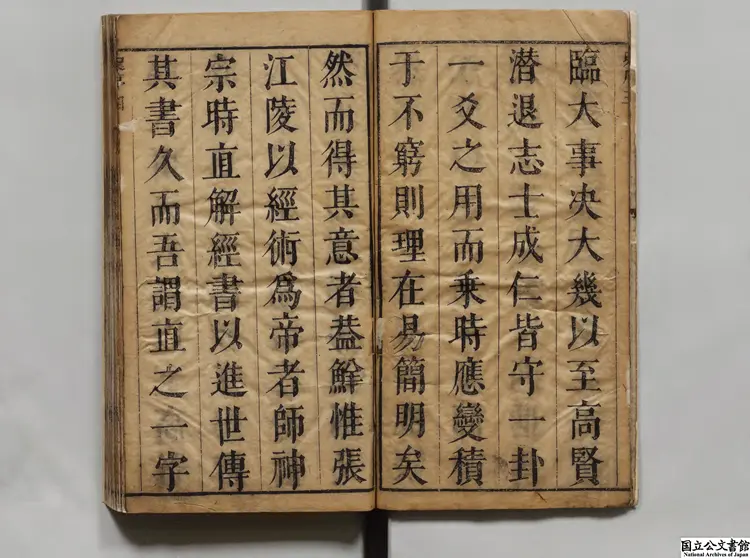 臨大事决大幾以至高賢
潜退志士成仁皆守一卦
一爻之用而乗時應變積
于不窮則理在易簡明矣
然而得其意者葢鮮惟張
江陵以經術爲帝者師神
宗時直解經書以進世傳
其書久而吾謂直之一字
国立公文書館
National Archives of Japan